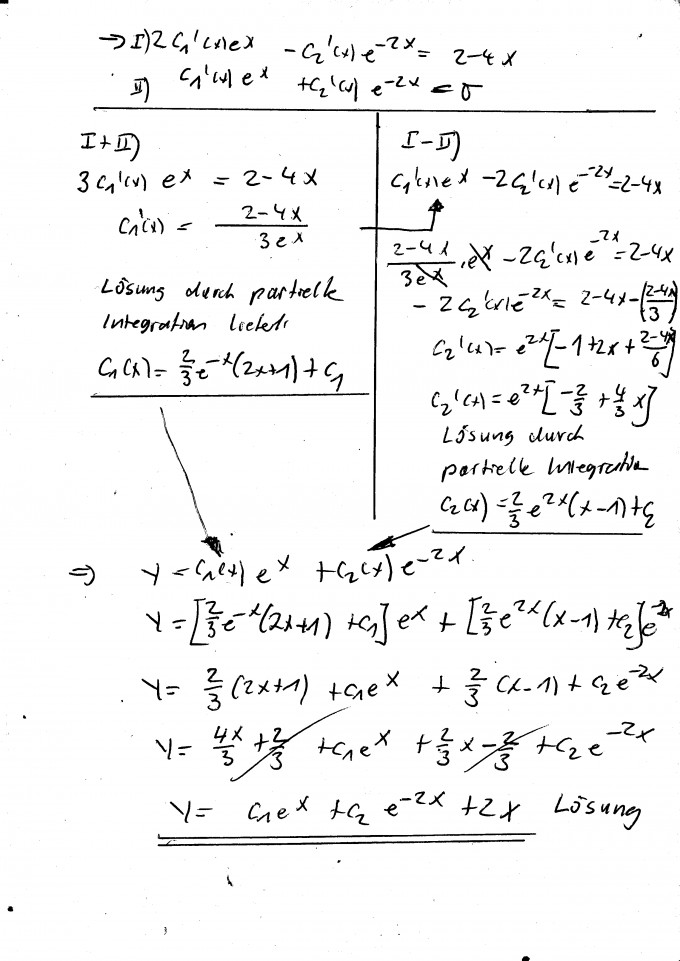 → I) 2 C₁'(x) eˣ - C₂'(x) e⁻²ˣ = 2-4x
II) C₁'(x) eˣ + C₂'(x) e⁻²ˣ = 0
I+II)
3 C₁'(x) eˣ = 2-4x
C₁'(x) = (2-4x)/(3eˣ)
Lösung durch partielle
Integration liefert:
C₁(x) = 2/3 e⁻ˣ (2x+1) + C₁
I-II)
C₁'(x) eˣ - 2C₂'(x) e⁻²ˣ = 2-4x
(2-4x)/(3eˣ) · eˣ - 2C₂'(x) e⁻²ˣ = 2-4x
- 2C₂'(x) e⁻²ˣ = 2-4x - ((2-4x)/3)
C₂'(x) = e²ˣ [-1+2x + (2-4x)/6]
C₂'(x) = e²ˣ [-2/3 + 4/3 x]
Lösung durch
partielle Integration
C₂(x) = 2/3 e²ˣ (x-1) + C₂
⇒ Y = C₁(x) eˣ + C₂(x) e⁻²ˣ
Y = [2/3 e⁻ˣ (2x+1) + C₁] eˣ + [2/3 e²ˣ (x-1) + C₂] e⁻²ˣ
Y = 2/3 (2x+1) + C₁eˣ + 2/3 (x-1) + C₂ e⁻²ˣ
Y = 4x/3 + 2/3 + C₁eˣ + 2/3 x - 2/3 + C₂ e⁻²ˣ
Y = C₁eˣ + C₂ e⁻²ˣ + 2x Lösung